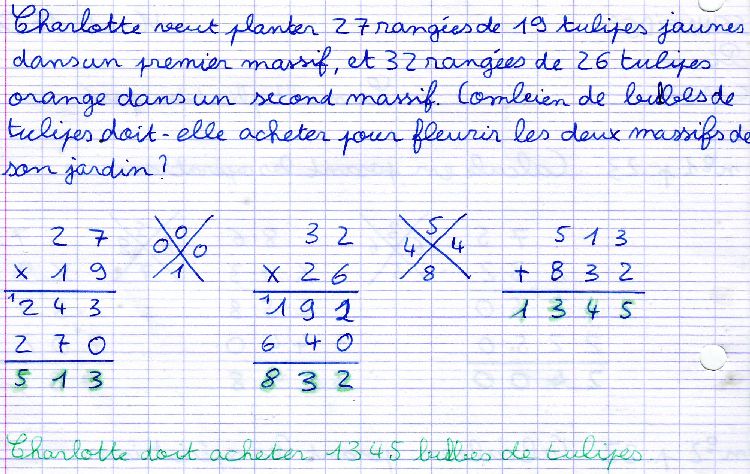 Charlotte veut planter 27 rangées de 19 tulipes jaunes
dans un premier massif, et 32 rangées de 26 tulipes
orange dans un second massif. Combien de bulbes de
tulipes doit-elle acheter pour fleurir les deux massifs de
son jardin ?
27 0 32 5 513
× 19 0 0 × 26 4 4 + 832
1 243 1 1 192 8 1345
270 640
513 832
Charlotte doit acheter 1345 bulbes de tulipes.